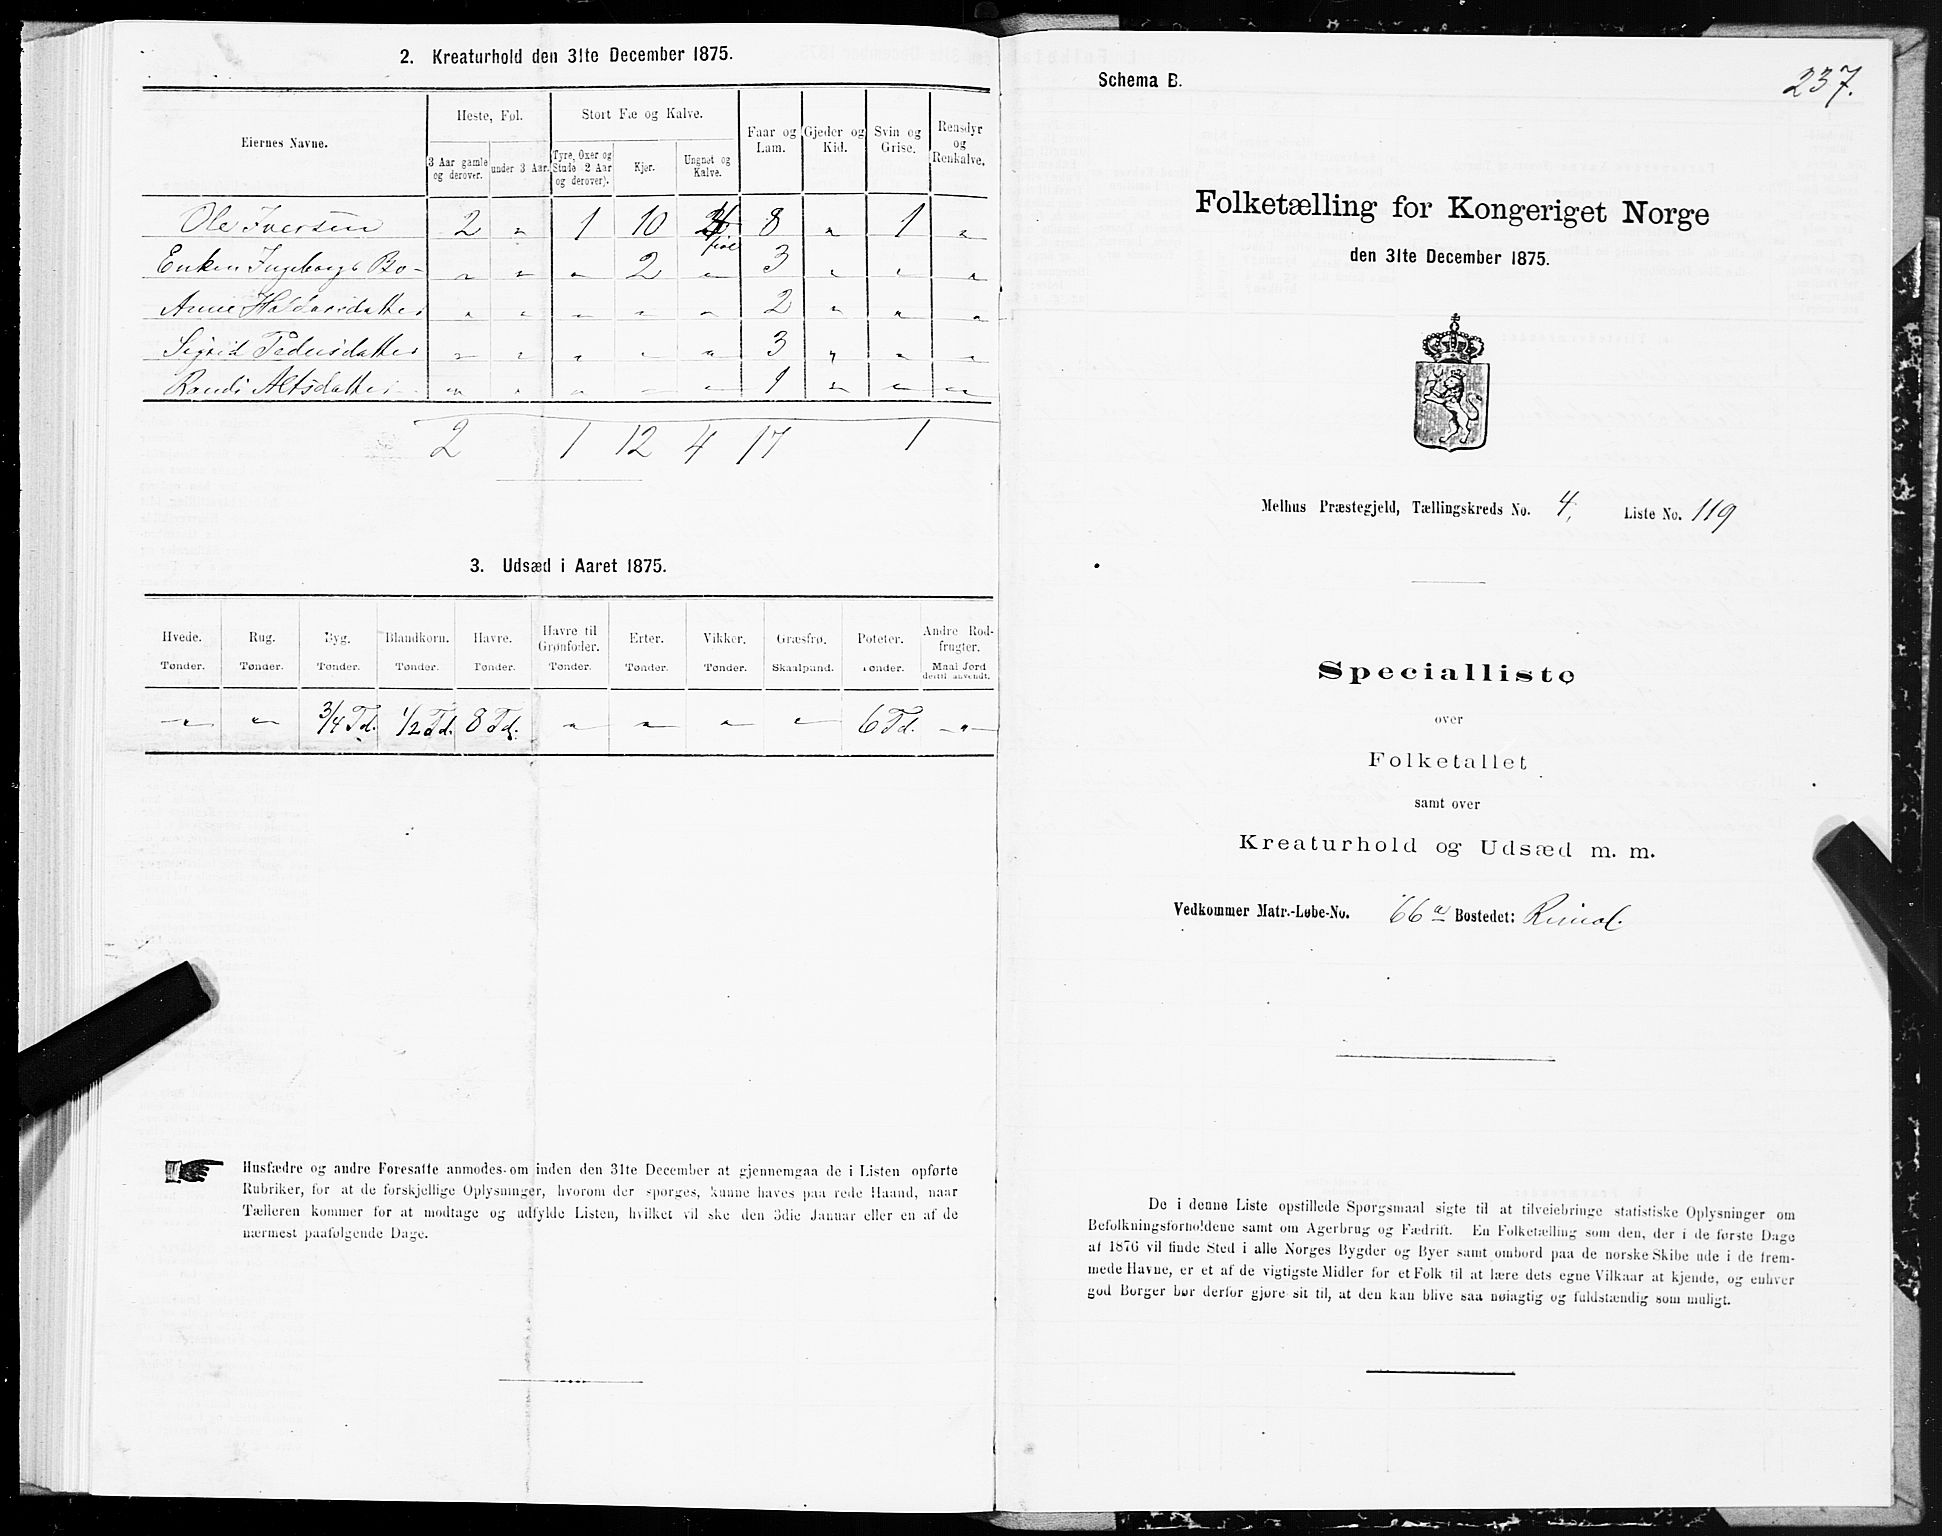 2. Kreaturhold den 31te December 1875.
Eiernes Navne.
Heste, Føl.
Stort Fæ og Kalve.
Faar og Lam.
Gjeder og Kid.
Svin og Grise.
Rensdyr og Renkalve.
3 Aar gamle og derover.
under 3 Aar.
Tyre, Oxer og Stude 2 Aar og derover).
Kjer.
Ungnøt og Kalve.
Ole Iversen 2 " 1 10 4 8 " 1 "
fire
Enken Ingeborg Bo- " " " 2 " 3 " " "
Anne Haldorsdatter " " " " " 2 " " "
Sigrid Pedersdatter " " " " " 3 " " "
Randi Altsdatter " " " " " 1 " " "
2 1 12 4 17 1
3. Udsæd i Aaret 1875.
Hvede. Rug. Byg. Blandkorn. Havre. Havre til Grønfoder. Erter. Vikker. Græsfrø. Poteter. Andre Rodfrugter.
Tønder. Tønder. Tønder. Tønder. Tønder. Tønder. Tønder. Tønder. Skaalpund. Tønder. Maal Jord dertil anvendt.
" " 3/4 Td. 1/2 Td. 8 Td. " " " " 6 Td. "
Husfædre og andre Foresatte anmodes om inden den 31te December at gjennemgaa de i Listen opførte
Rubriker, for at de forskjellige Oplysninger, hvorom der spørges, kunne haves paa rede Haand, naar
Tælleren kommer for at modtage og udfylde Listen, hvilket vil ske den 3die Januar eller en af de
nærmest paafølgende Dage.
Schema B.
237.
Folketælling for Kongeriget Norge
den 31te December 1875.
Melhus Præstegjeld, Tællingskreds No. 4, Liste No. 119
Specialliste
over
Folketallet
samt over
Kreaturhold og Udsæd m. m.
Vedkommer Matr.-Løbe-No. 66a Bostedet: Rimol.
De i denne Liste opstillede Spørgsmaal sigte til at tilveiebringe statistiske Oplysninger om
Befolkningsforholdene samt om Agerbrug og Fædrift. En Folketælling som den, der i de første Dage
af 1876 vil finde Sted i alle Norges Bygder og Byer samt ombord paa de norske Skibe ude i de frem-
mede Havne, er et af de vigtigste Midler for et Folk til at lære dets egne Vilkaar at kjende, og enhver
god Borger bør derfor gjøre sit til, at den kan blive saa nøiagtig og fuldstændig som muligt.